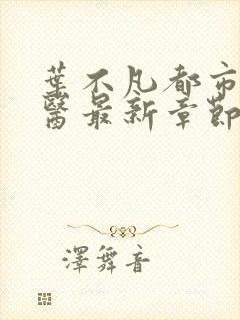 葉不凡都市
醫最新章節
澤舞音